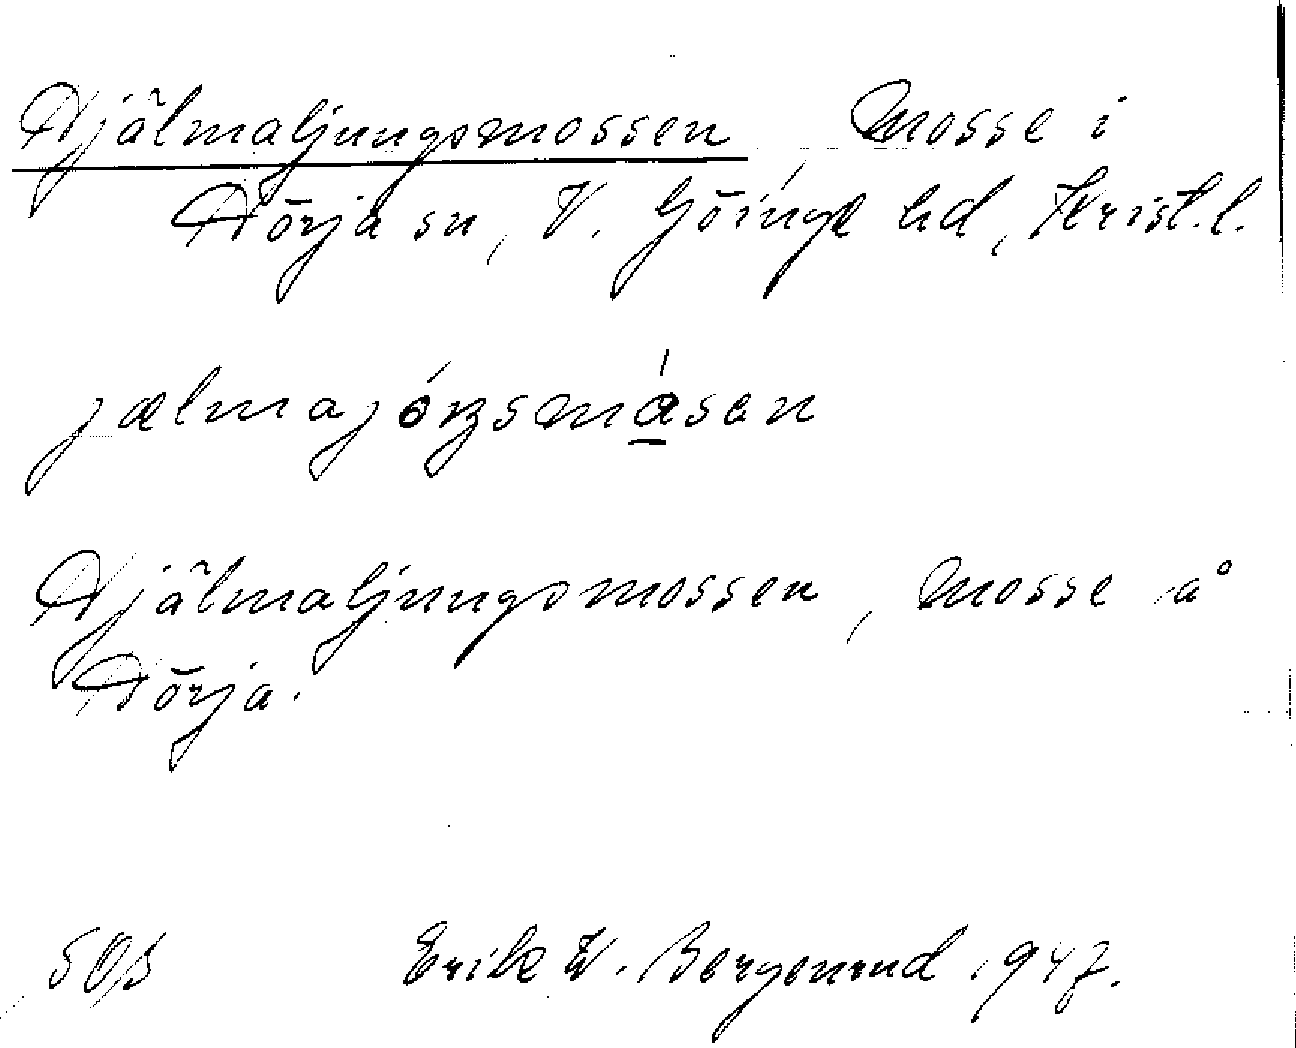 Hjälmaljungsmossen, Mosse i
Hörja sn, V. Göinge hd, Krist.l.
jælmajóŋsmåsen
Hjälmaljungsmossen, Mosse å
Hörja.
Erik W. Bergenrud 1947.